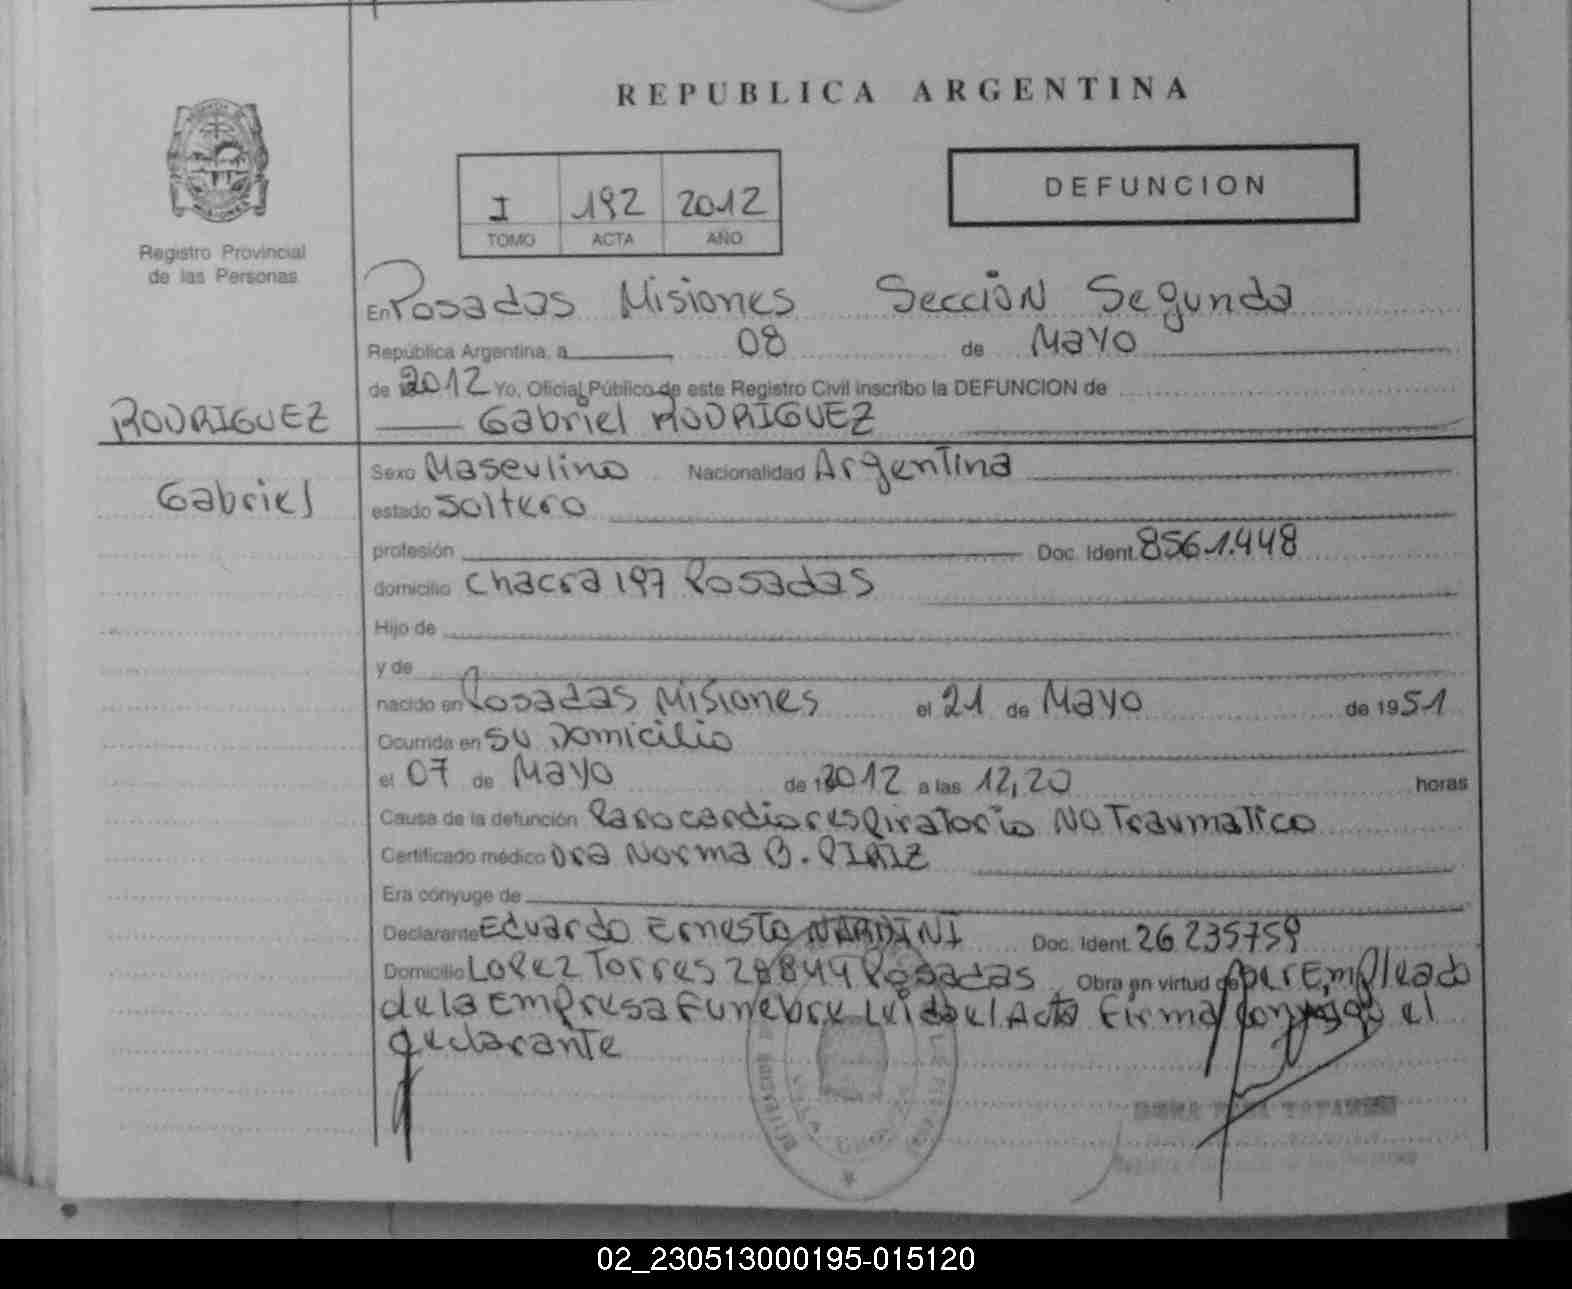 REPUBLICA ARGENTINA
DEFUNCION
I 192 2012
TOMO ACTA AÑO
Registro Provincial
de las Personas
En Posadas Misiones Sección Segunda
República Argentina, a 08 de Mayo
de 2012 Yo, Oficial Público de este Registro Civil inscribo la DEFUNCION de
RODRIGUEZ
Gabriel RODRIGUEZ
Gabriel
Sexo Masculino Nacionalidad Argentina
estado Soltero
profesión Doc. Ident. 8561.448
domicilio Chacra 197 Posadas
Hijo de
y de
nacido en Posadas Misiones el 21 de Mayo de 1951
Ocurrida en su Domicilio
el 07 de Mayo de 2012 a las 12,20 horas
Causa de la defunción Parocardiorespiratorio No Traumatico
Certificado médico Dra Norma B. PIRIZ
Era cónyuge de
Declarante Eduardo Ernesto NARDINI Doc. Ident. 26 235759
Domicilio Lopez Torres Posadas Obra en virtud de ser Empleado
de la Empresa Funebre Leida el Acta Firma conmigo el
declarante
02_230513000195-015120